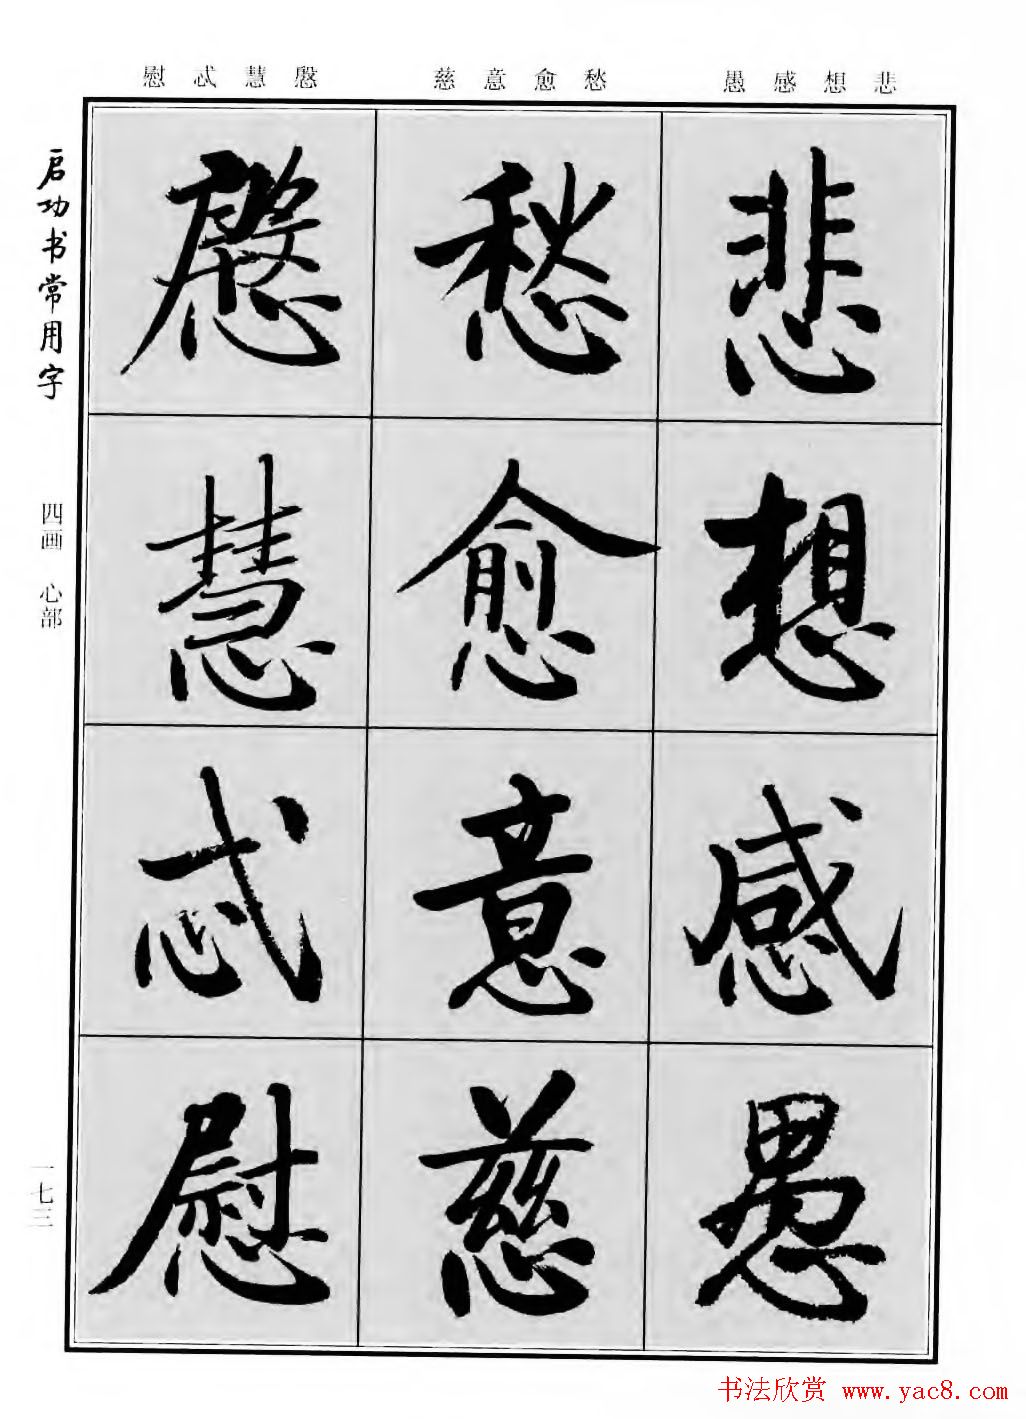 慰忒慧慇 慈意愈愁 愚感想悲
启功书常用字
四画 心部
一七三
悲
想
感
愚
愁
愈
意
慈
慇
慧
忒
慰
书法欣赏 www.yac8.com